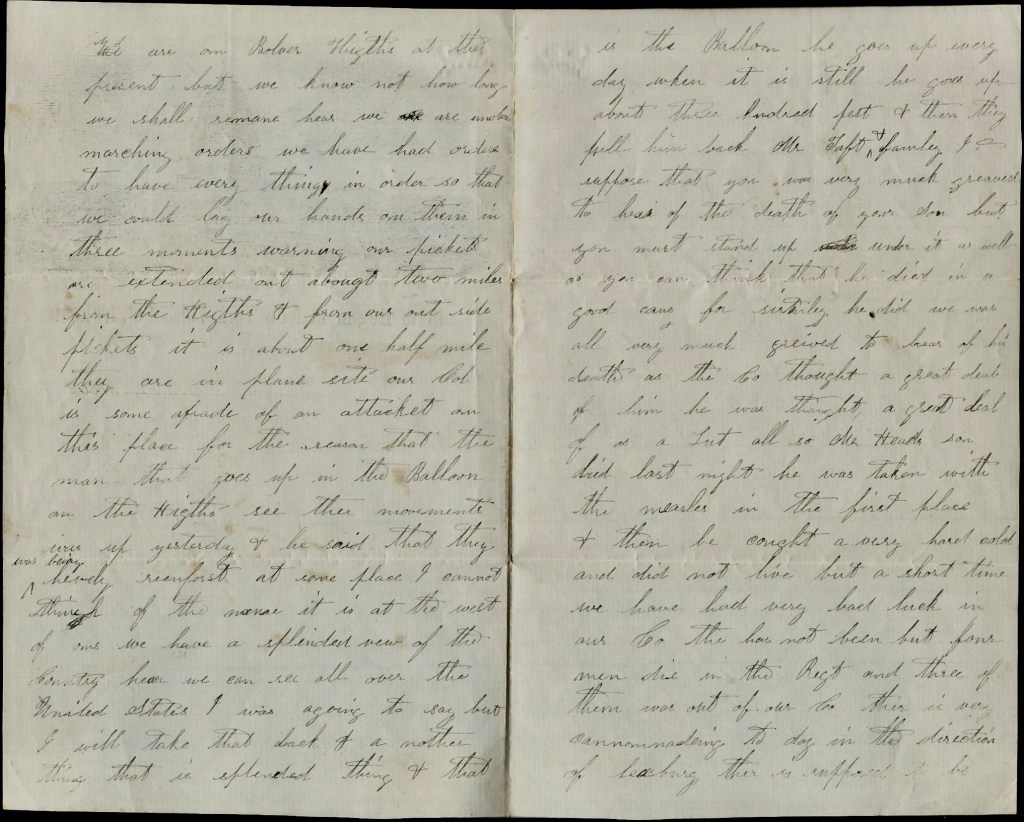 We are on Bolver Higths at the
present but we know not how long
we shall remane hear we are under
marching orders we have had orders
to have every thing in order so that
we could lay our hands on them in
three moments warning our pickets
are extended out abougt two miles
from the Higths & from our out side
pickets it is about one half mile
they are in plane site our Col
is some afrade of an attacket on
this place for the reason that the
man that goes up in the Balloon
on the Higths see ther movements
was up yesterday & he said that they
was being
hevely reenforst at some place I cannot
think of the name it is at the west
of ous we have a splended vew of the
Country hear we can see all over the
United States I was agoing to say but
I will take that back & a nother
thing that is splended thing & that
is the Balloon he goes up every
day when it is still he goes up
about three hndred feet & then they
pull him back Mr Taft & famley I
suppose that you was very much greaved
to hear of the death of your Son but
you must stand up under it as well
as you can think that he died in a
good caus for sirtinley he did we was
all very much greived to hear of his
death as the Co thought a great deal
of him he was thought a great deal
of as a Lut all so Mr Heads son
died last night he was taken with
the measles in the first place
& then he cought a very hard cold
and did not live but a short time
we have had very bad luck in
our Co the has not been but four
men die in the Regt and three of
them was out of our Co ther is very
cannonnadeing to day in the direction
of leesburg ther is supposed to be